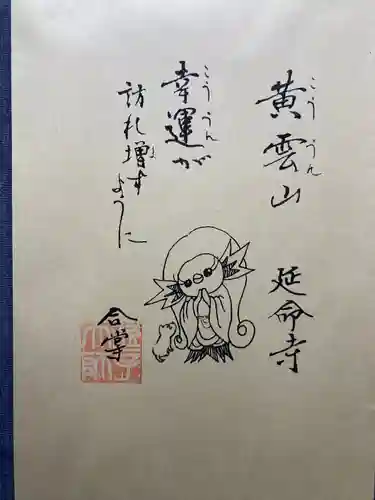 黄雲山 延命寺
こううん
幸運が
こううん
訪れ増す
ま
ように
合掌